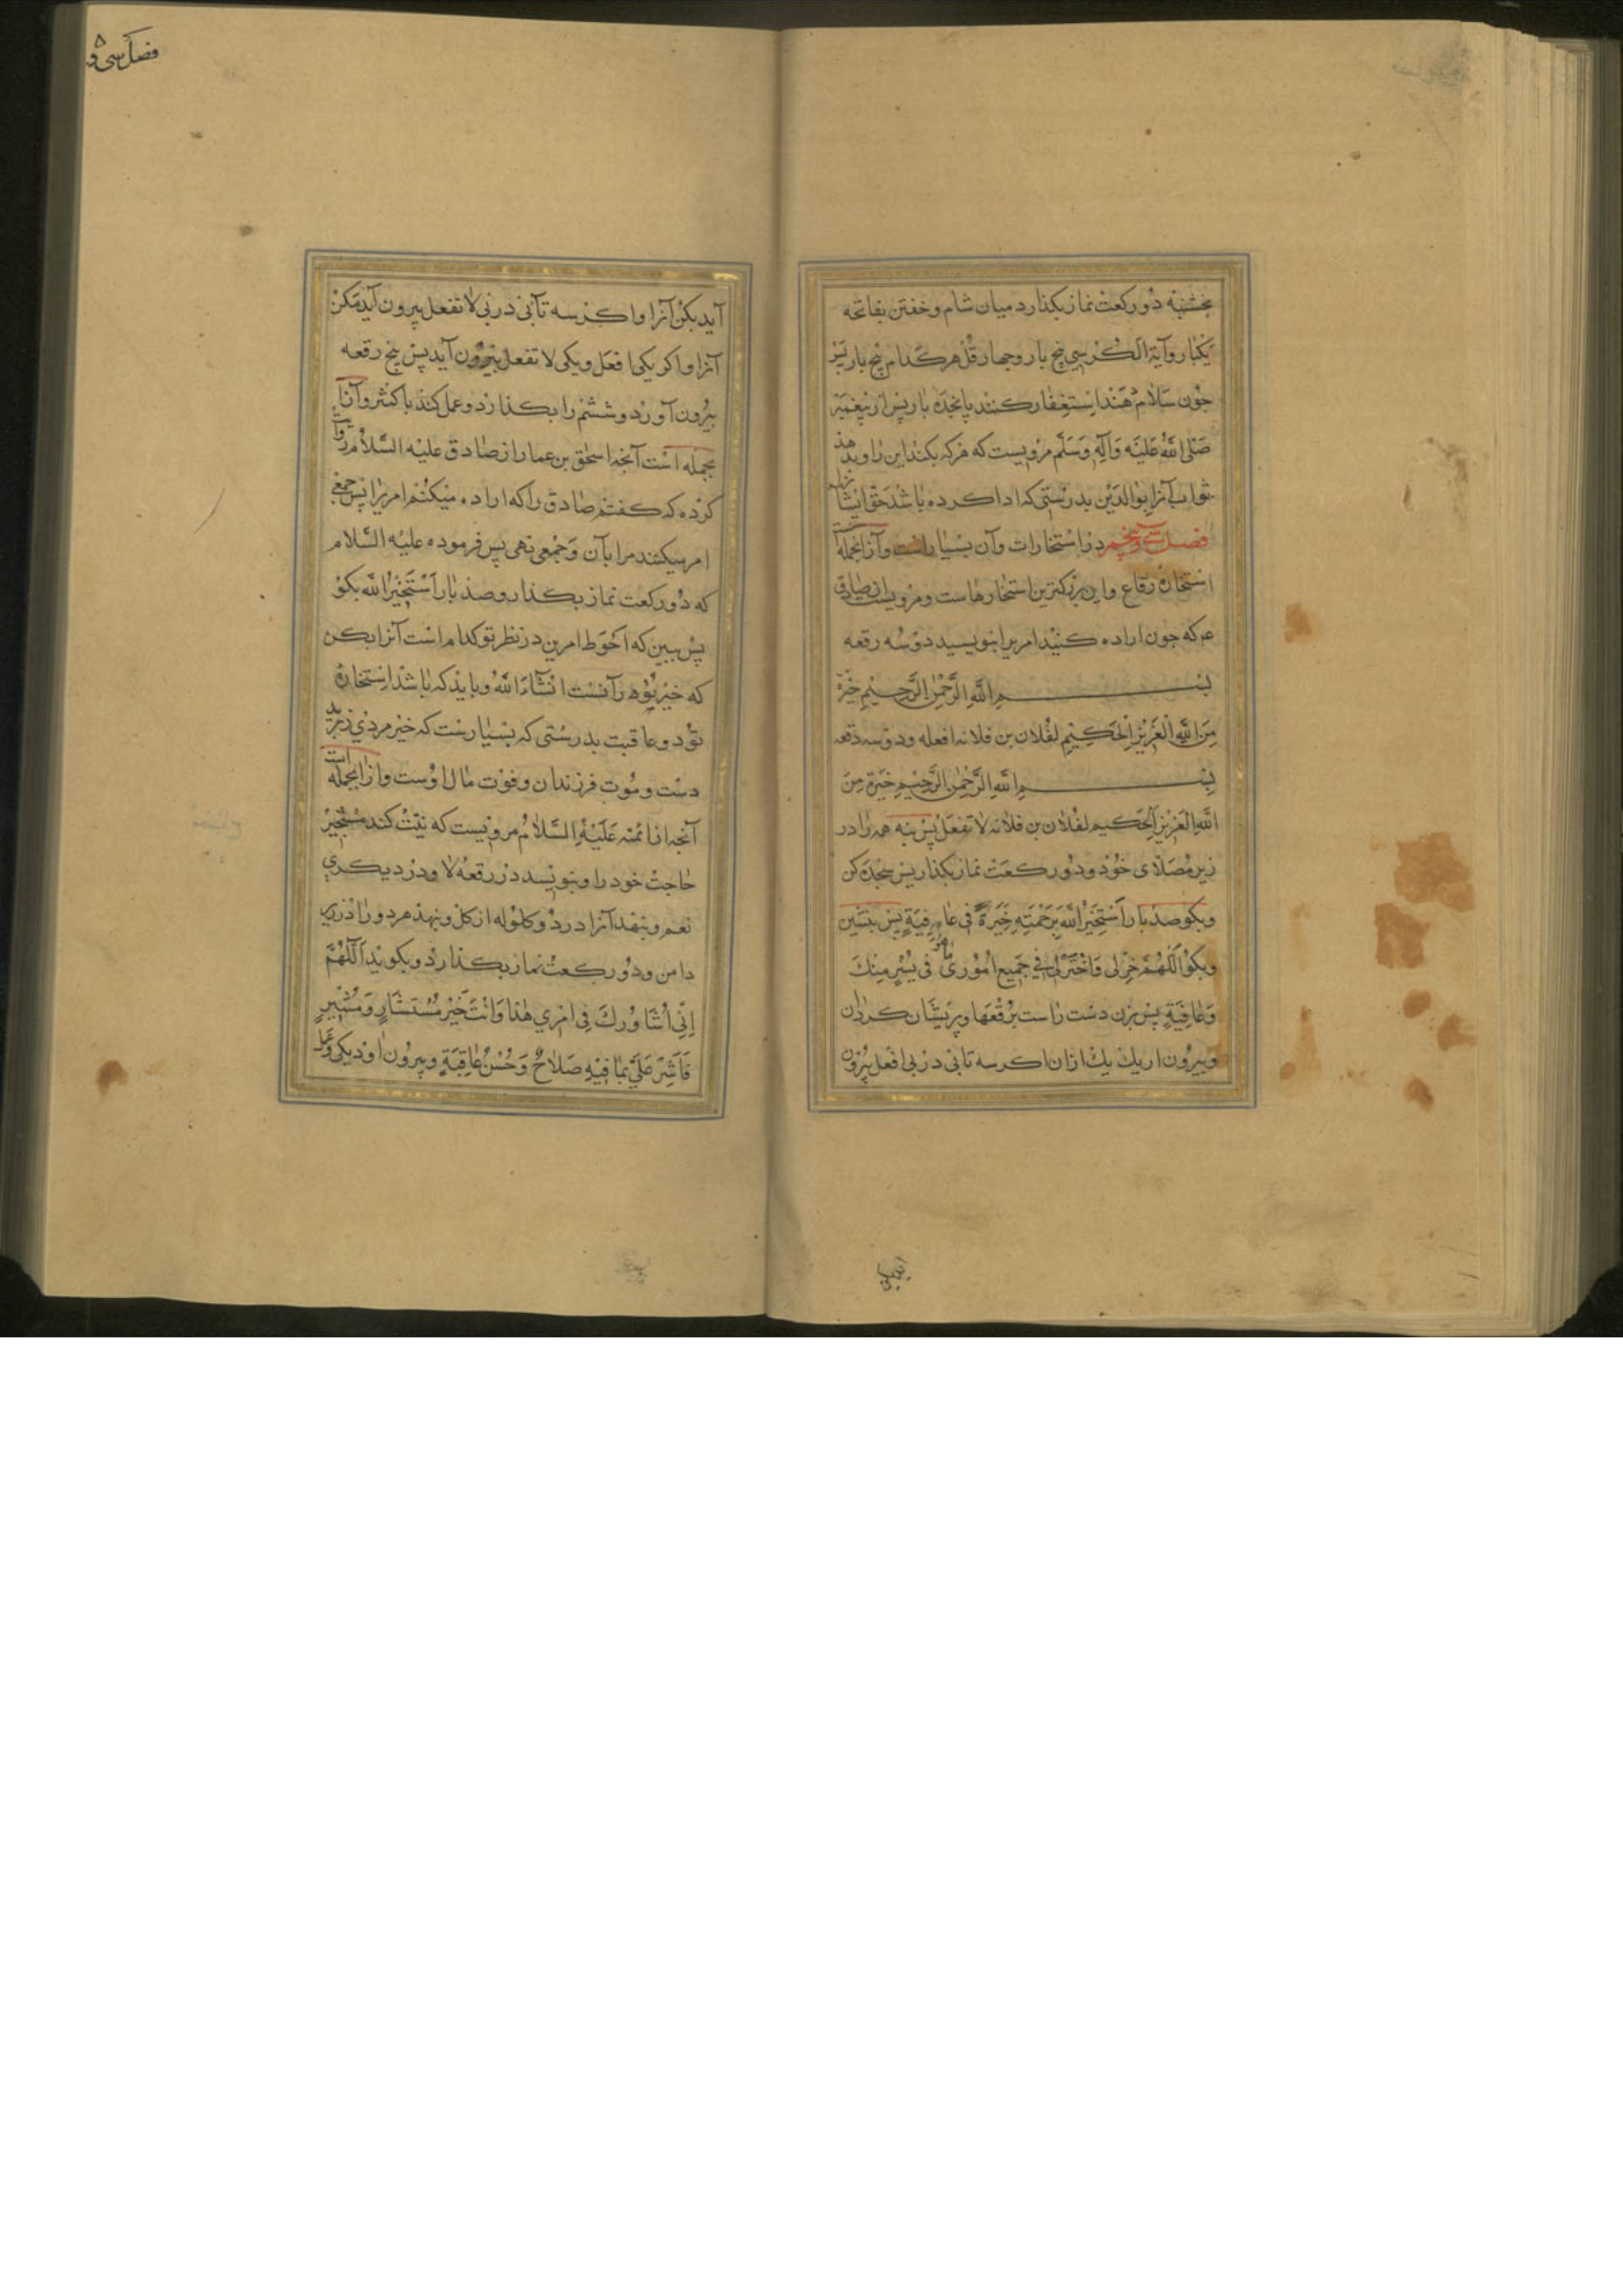 بخشنبه دو رکعت نماز بکذارد میان شام و خفتن بفاتحه
یکبار و آیة الکرسی پنج بار و چهار قل هر کدام پنج بار پس
چون سلام دهند استغفار کنند پانجده بار پس از پیغمبر
صَلَّی اللهُ عَلَیْهِ وَآلِهِ وَسَلَّم مرویست که هرکه بکند این را و بدهد
ثواب آنرا بوالدین بدرستی که ادا کرده باشد حق ایشانرا
فصل سی و پنجم در استخارات و آن بسیار است و از آنجمله است
استخاره رقاع و این بزرکترین استخارهاست و مرویست از صادق
ع که چون اراده کنید امریرا بنویسید در سه رقعه
بِسْمِ اللهِ الرَّحْمٰنِ الرَّحِیمِ خِیَرَةٌ
مِنَ اللهِ الْعَزِیزِ الْحَکِیمِ لفلان بن فلانه افعله و در سه رقعه
بِسْمِ اللهِ الرَّحْمٰنِ الرَّحِیمِ خِیَرَةٌ مِنَ
اللهِ الْعَزِیزِ الْحَکِیم لفلان بن فلانه لا تفعل پس بنه همه را در
زیر مصلّای خود و دو رکعت نماز بکذار پس سجده کن
و بکو صد بار اَسْتَخِیرُ اللهَ بِرَحْمَتِهِ خِیَرَةً فِی عَافِیَةٍ پس بنشین
و بکو اَللّٰهُمَّ خِرْ لِی وَاخْتَرْ لِی فِی جَمِیعِ اُمُورِی فِی یُسْرٍ مِنْکَ
وَ عَافِیَةٍ پس بزن دست راست بر رقعها و پریشان کردان
و بیرون ار یك یك از ان اکر سه تا پی در پی افعل بیرون
فصل سی و ۵
آید بکن آنرا و اکر سه تا پی در پی لا تفعل بیرون آید مکن
آنرا و اکر یکی افعل و یکی لا تفعل بیرون آید پس پنج رقعه
بیرون آورد و ششم را بکذارد و عمل کند باکثر و از آن
بجمله است آنچه اسحق بن عمار از صادق علیه السلام روایت
کرده که کفتم صادق را که اراده میکنم امریرا پس جمعی
امر میکنند مرا بآن و جمعی نهی پس فرموده علیه السلام
که دو رکعت نماز بکذار و صد بار اَسْتَخِیرُ الله بکو
پس ببین که احوط امرین در نظر تو کدام است آنرا بکن
که خیر تو در آنست انشاءَ الله و باید که باشد استخاره
تو در عاقبت بدرستی که بسیارست که خیر مردی در برید
دست و موت فرزندان و فوت مال اوست و از آنجمله است
آنچه از ائمه عَلَیْهِ السَّلَامُ مرویست که نیّت کند مستخیر
حاجت خود را و بنویسد در رقعه لا و در دیکری
نعم و بنهد آنرا در دو کلوله از کل و بنهد هر دو را در زیر
دامن و دو رکعت نماز بکذارد و بکوید اَللّٰهُمَّ
اِنّی اُشَاوِرُكَ فِی اَمْرِی هٰذَا وَ اَنْتَ خَیْرُ مُسْتَشَارٍ وَ مُشِیرٍ
فَاَشِرْ عَلَیَّ بِمَا فِیهِ صَلَاحٌ وَ حُسْنُ عَاقِبَةٍ و بیرون آورد یکی و عمل